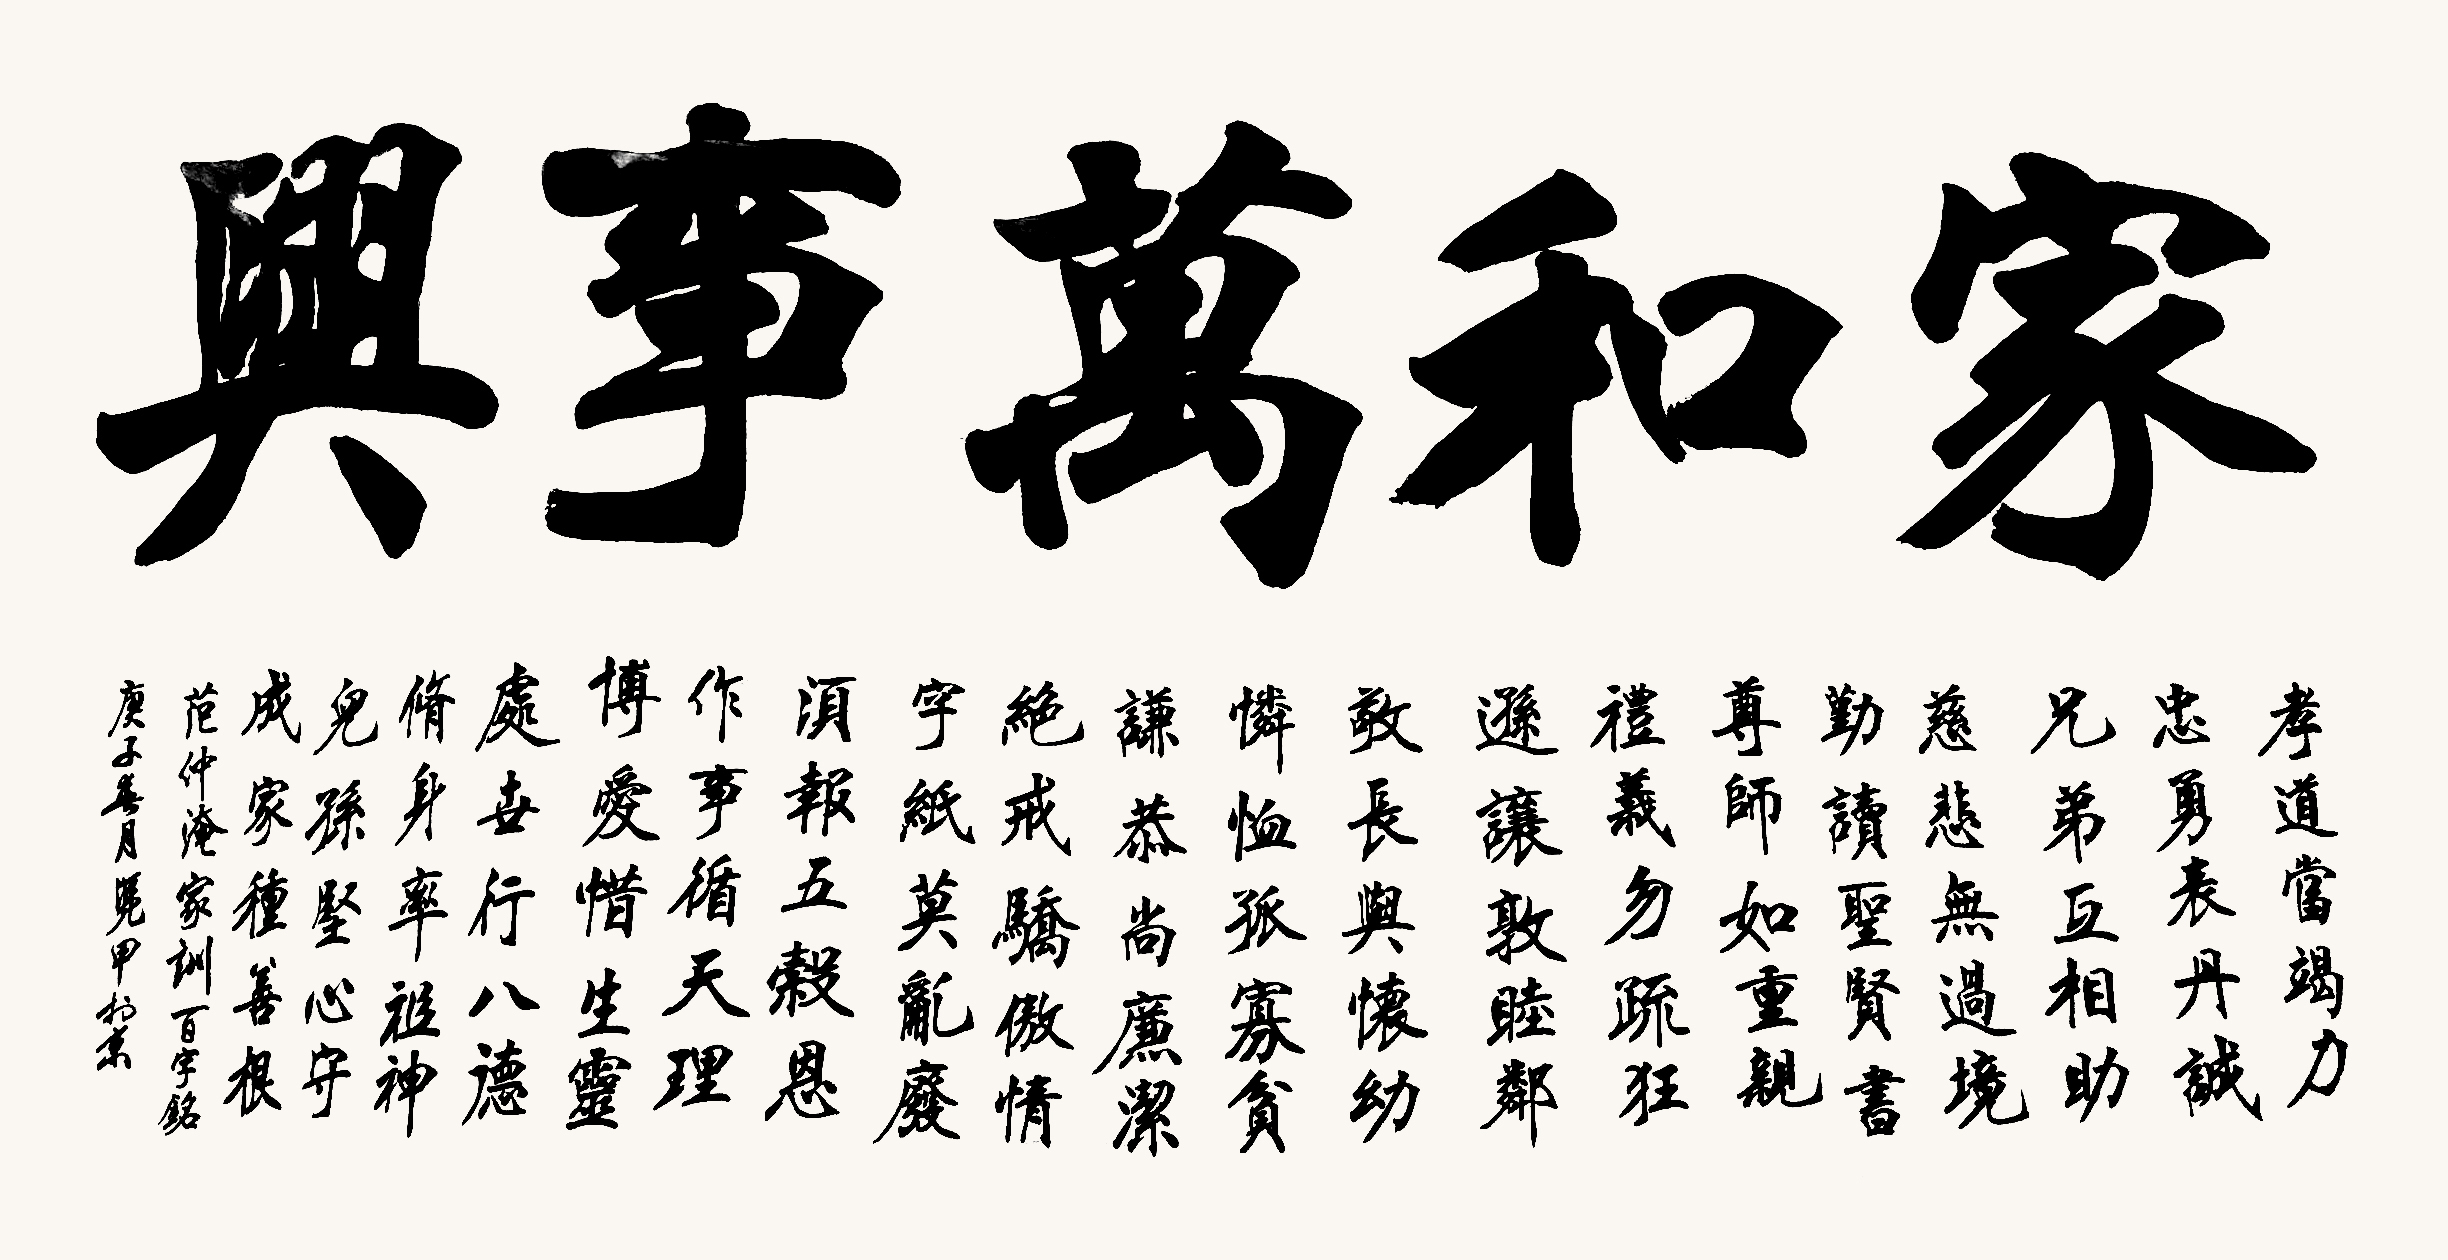 家和萬事興
孝道當竭力
忠勇表丹誠
兄弟互相助
慈悲無過境
勤讀聖賢書
尊師如重親
禮義勿疏狂
遜讓敦睦鄰
敬長與懷幼
憐恤孤寡貧
謙恭尚廉潔
絕戒驕傲情
字紙莫亂廢
須報五穀恩
作事循天理
博愛惜生靈
處世行八德
脩身率祖神
兒孫堅心守
成家種善根
范仲淹家訓百字銘
庚子春月 甲於京